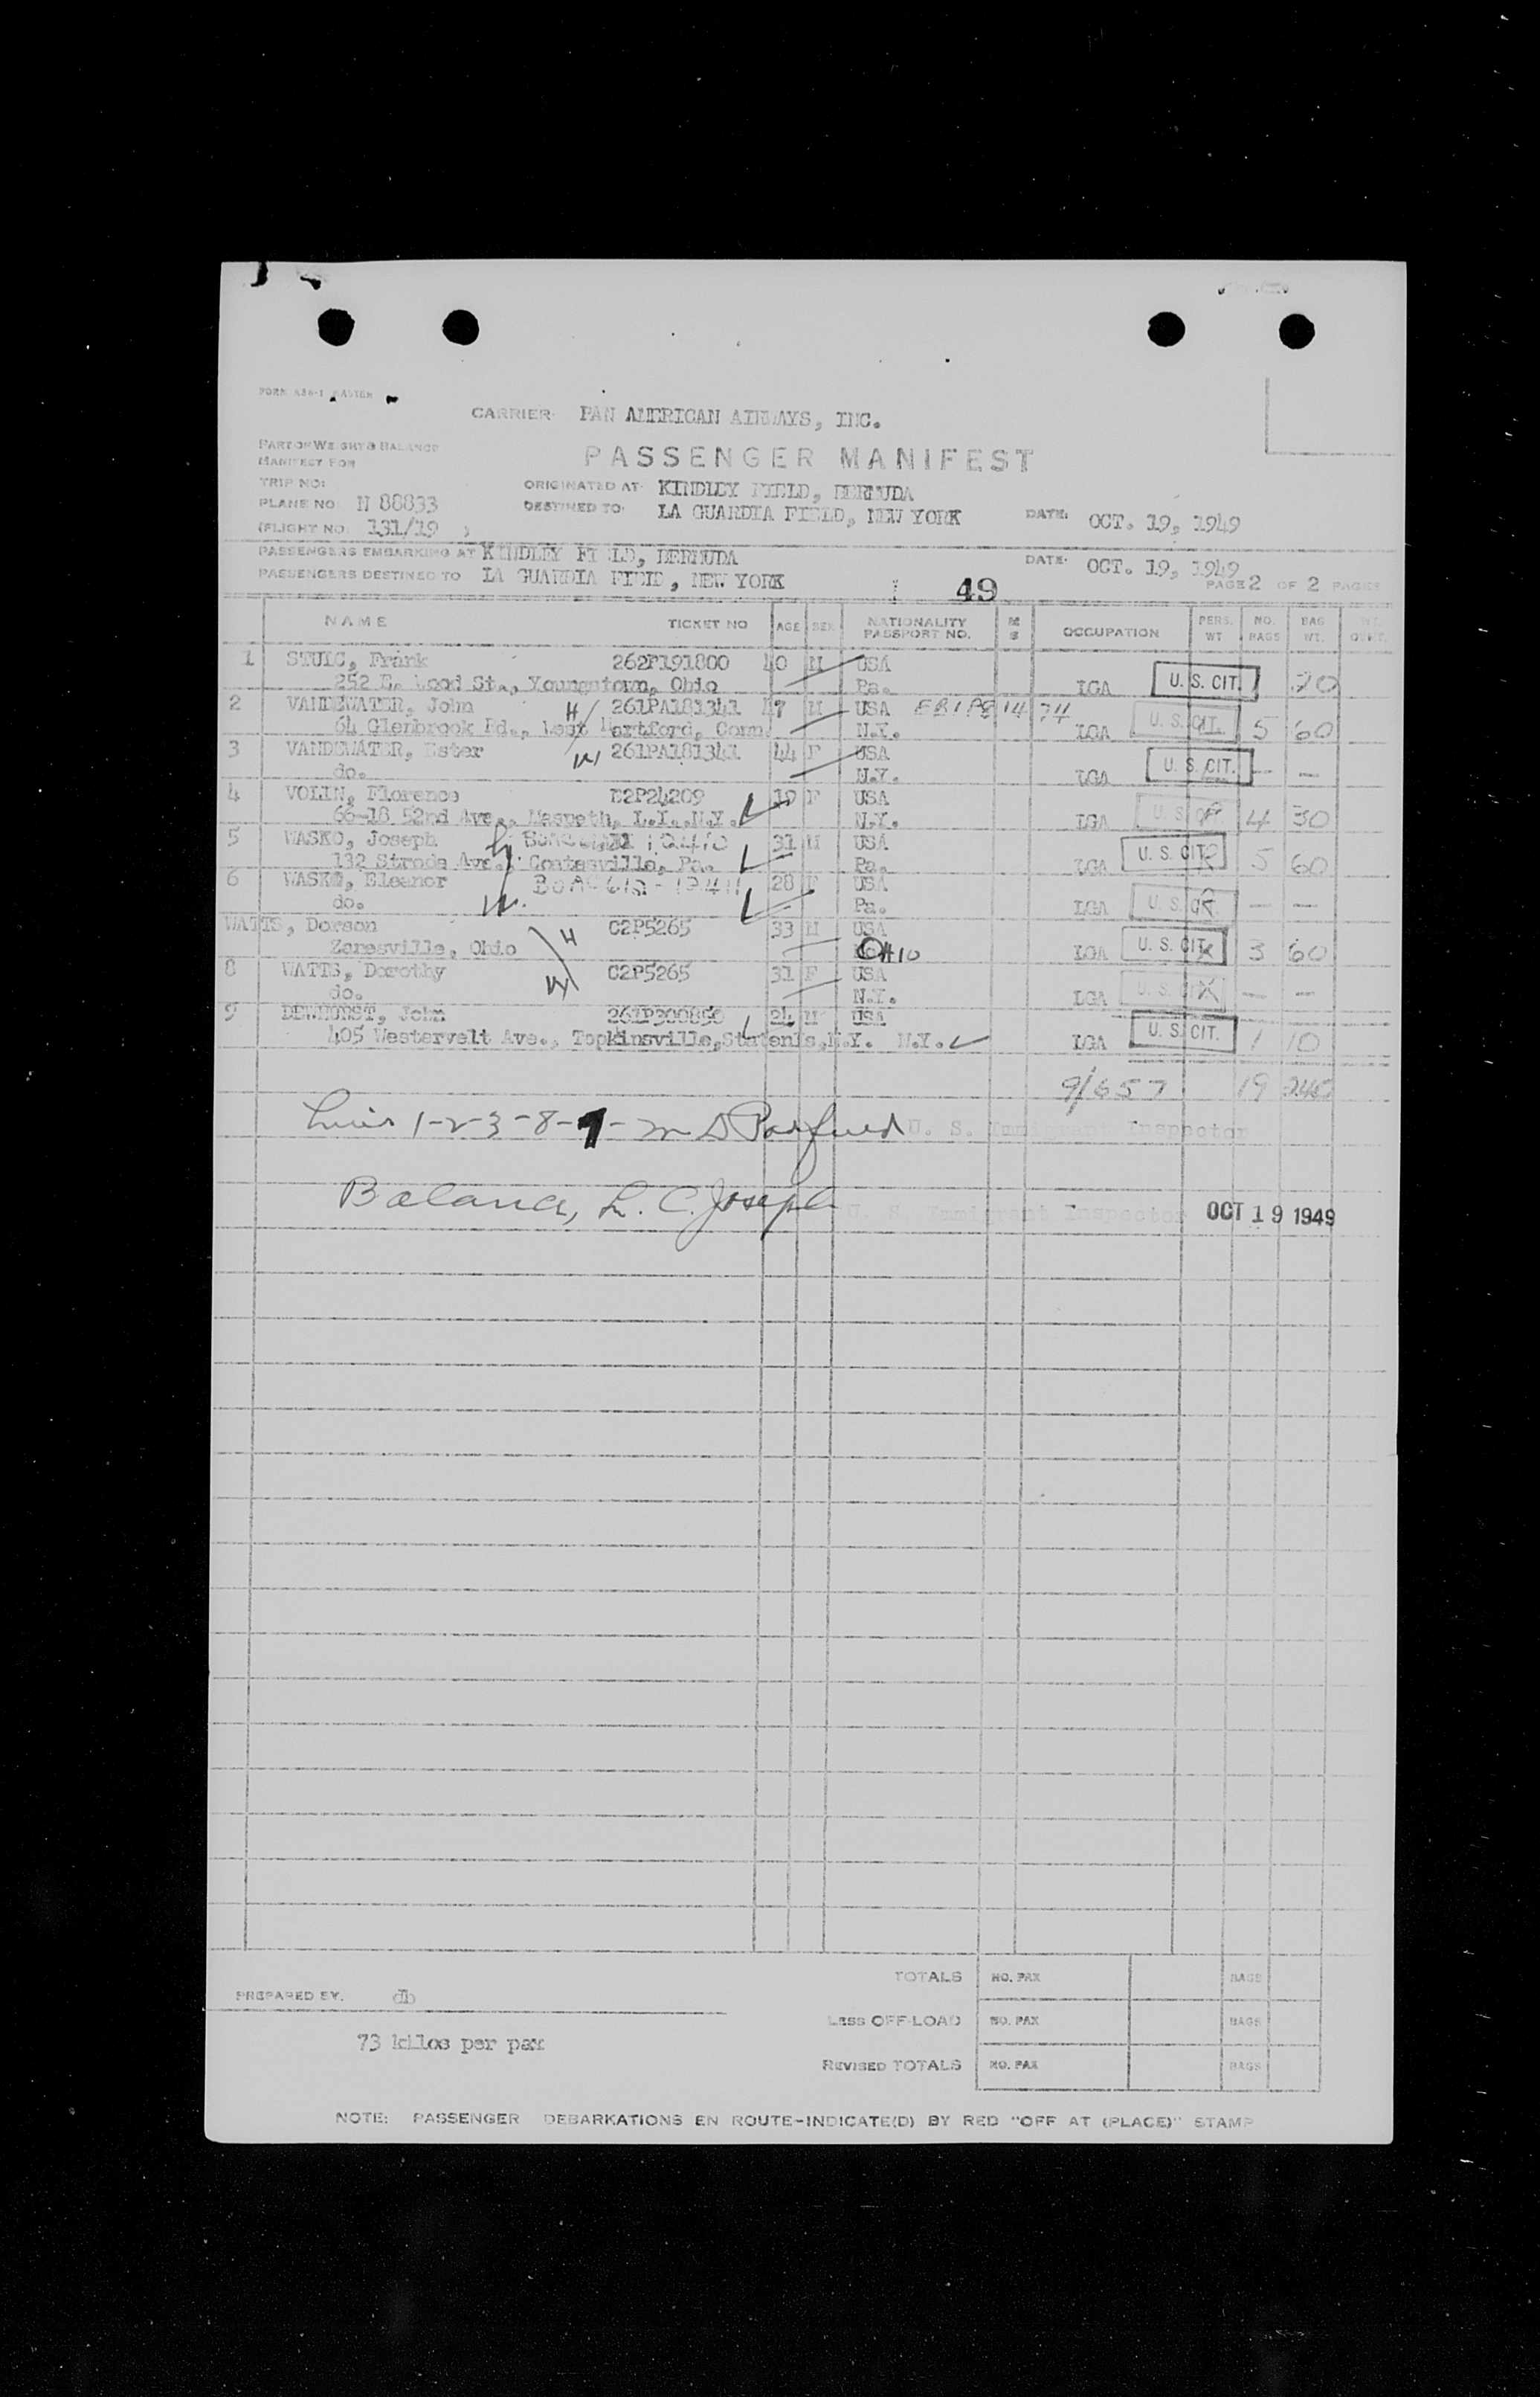 FORM 436-1
CARRIER PAN AMERICAN AIRWAYS, INC.
PART OF WEIGHT & BALANCE
MANIFEST FOR
PASSENGER MANIFEST
TRIP NO:
ORIGINATED AT: KINDLEY FIELD, BERMUDA
PLANE NO. N 88833
DESTINED TO: LA GUARDIA FIELD, NEW YORK DATE: OCT. 19, 1949
(FLIGHT NO. 131/19 )
PASSENGERS EMBARKING AT KINDLEY FI LD, BERMUDA DATE: OCT. 19, 1949
PASSENGERS DESTINED TO LA GUARDIA FIELD, NEW YORK
49 PAGE 2 OF 2 PAGES
NAME TICKET NO AGE SEX NATIONALITY PASSPORT NO. M S OCCUPATION PERS. WT NO. BAGS BAG WT.
1 STULC, Frank 262P191800 40 M USA
252 E. Wood St., Youngstown, Ohio Pa. LGA U. S. CIT. 1 20
2 VANDEWATER, John H 261PA181341 47 M USA
64 Glenbrook Rd., West Hartford, Conn. N.Y. LGA U. S. CIT. 5 60
3 VANDEWATER, Ester W 261PA181341 44 F USA
do. N.Y. LGA U. S. CIT. — —
4 VOLIN, Florence E2P24209 19 F USA
66-18 52nd Ave., Maspeth, L.I.,N.Y. N.Y. LGA U. S. 4 30
5 WASKO, Joseph 31 M USA
132 Strode Ave., Coatesville, Pa. Pa. LGA U. S. CIT 5 60
6 WASKO, Eleanor 28 F USA
do. W. Pa. LGA U. S. — —
WATTS, Dorson H C2P5265 33 M USA
Zanesville, Ohio OHIO LGA U. S. CIT. 3 60
8 WATTS, Dorothy W C2P5265 31 F USA
do. N.Y. LGA U. S. — —
9 DEWHURST, John 261P300850 24 M USA
405 Westervelt Ave., Topkinsville,Staten Is.,N.Y. N.Y. LGA U. S. CIT. 1 10
9/657 19 240
1-2-3-8-7- U. S. Immigrant Inspector
Balance, L. C. Joseph U. S. Immigrant Inspector OCT 19 1949
TOTALS NO. PAX BAGS
PREPARED BY. db
LESS OFF-LOAD NO. PAX BAGS
73 kilos per pax
REVISED TOTALS NO. PAX BAGS
NOTE: PASSENGER DEBARKATIONS EN ROUTE-INDICATE(D) BY RED "OFF AT (PLACE)" STAMP